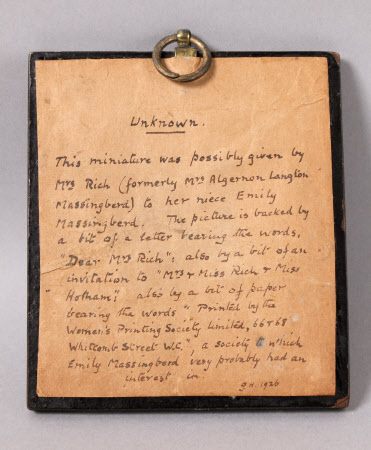 Unknown.
This miniature was possibly given by
Mrs Rich (formerly Mrs Algernon Langton
Massingberd) to her niece Emily
Massingberd. The picture is backed by
a bit of a letter bearing the words,
"Dear Mrs Rich"; also by a bit of an
invitation to "Mrs & Miss Rich & Miss
Hotham"; also by a bit of paper
bearing the words "Printed by the
Women's Printing Society Limited, 66 & 68
Whitcomb Street W.C.", a society in which
Emily Massingberd very probably had an
interest in.
G.H. 1926